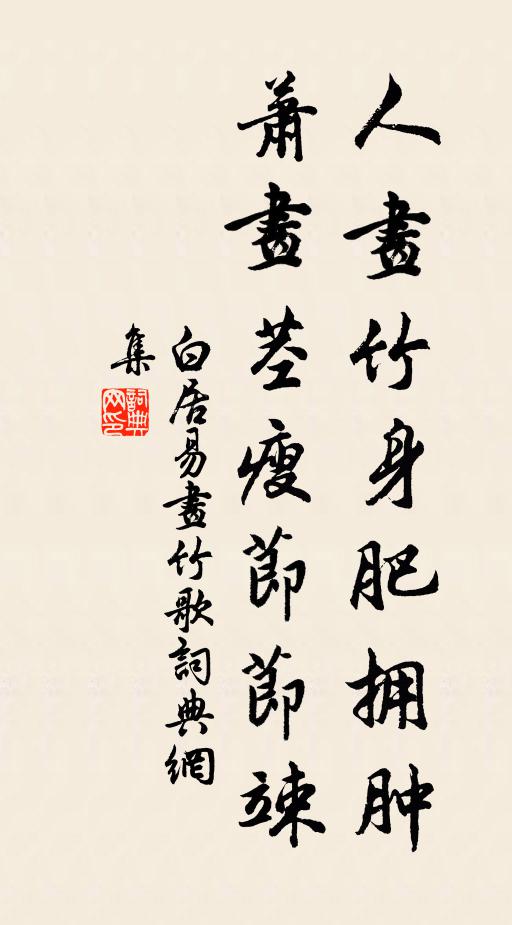 人畫竹身肥拥肿
蕭畫茎瘦節節竦
白居易畫竹歌詞典網
集
詞典网印